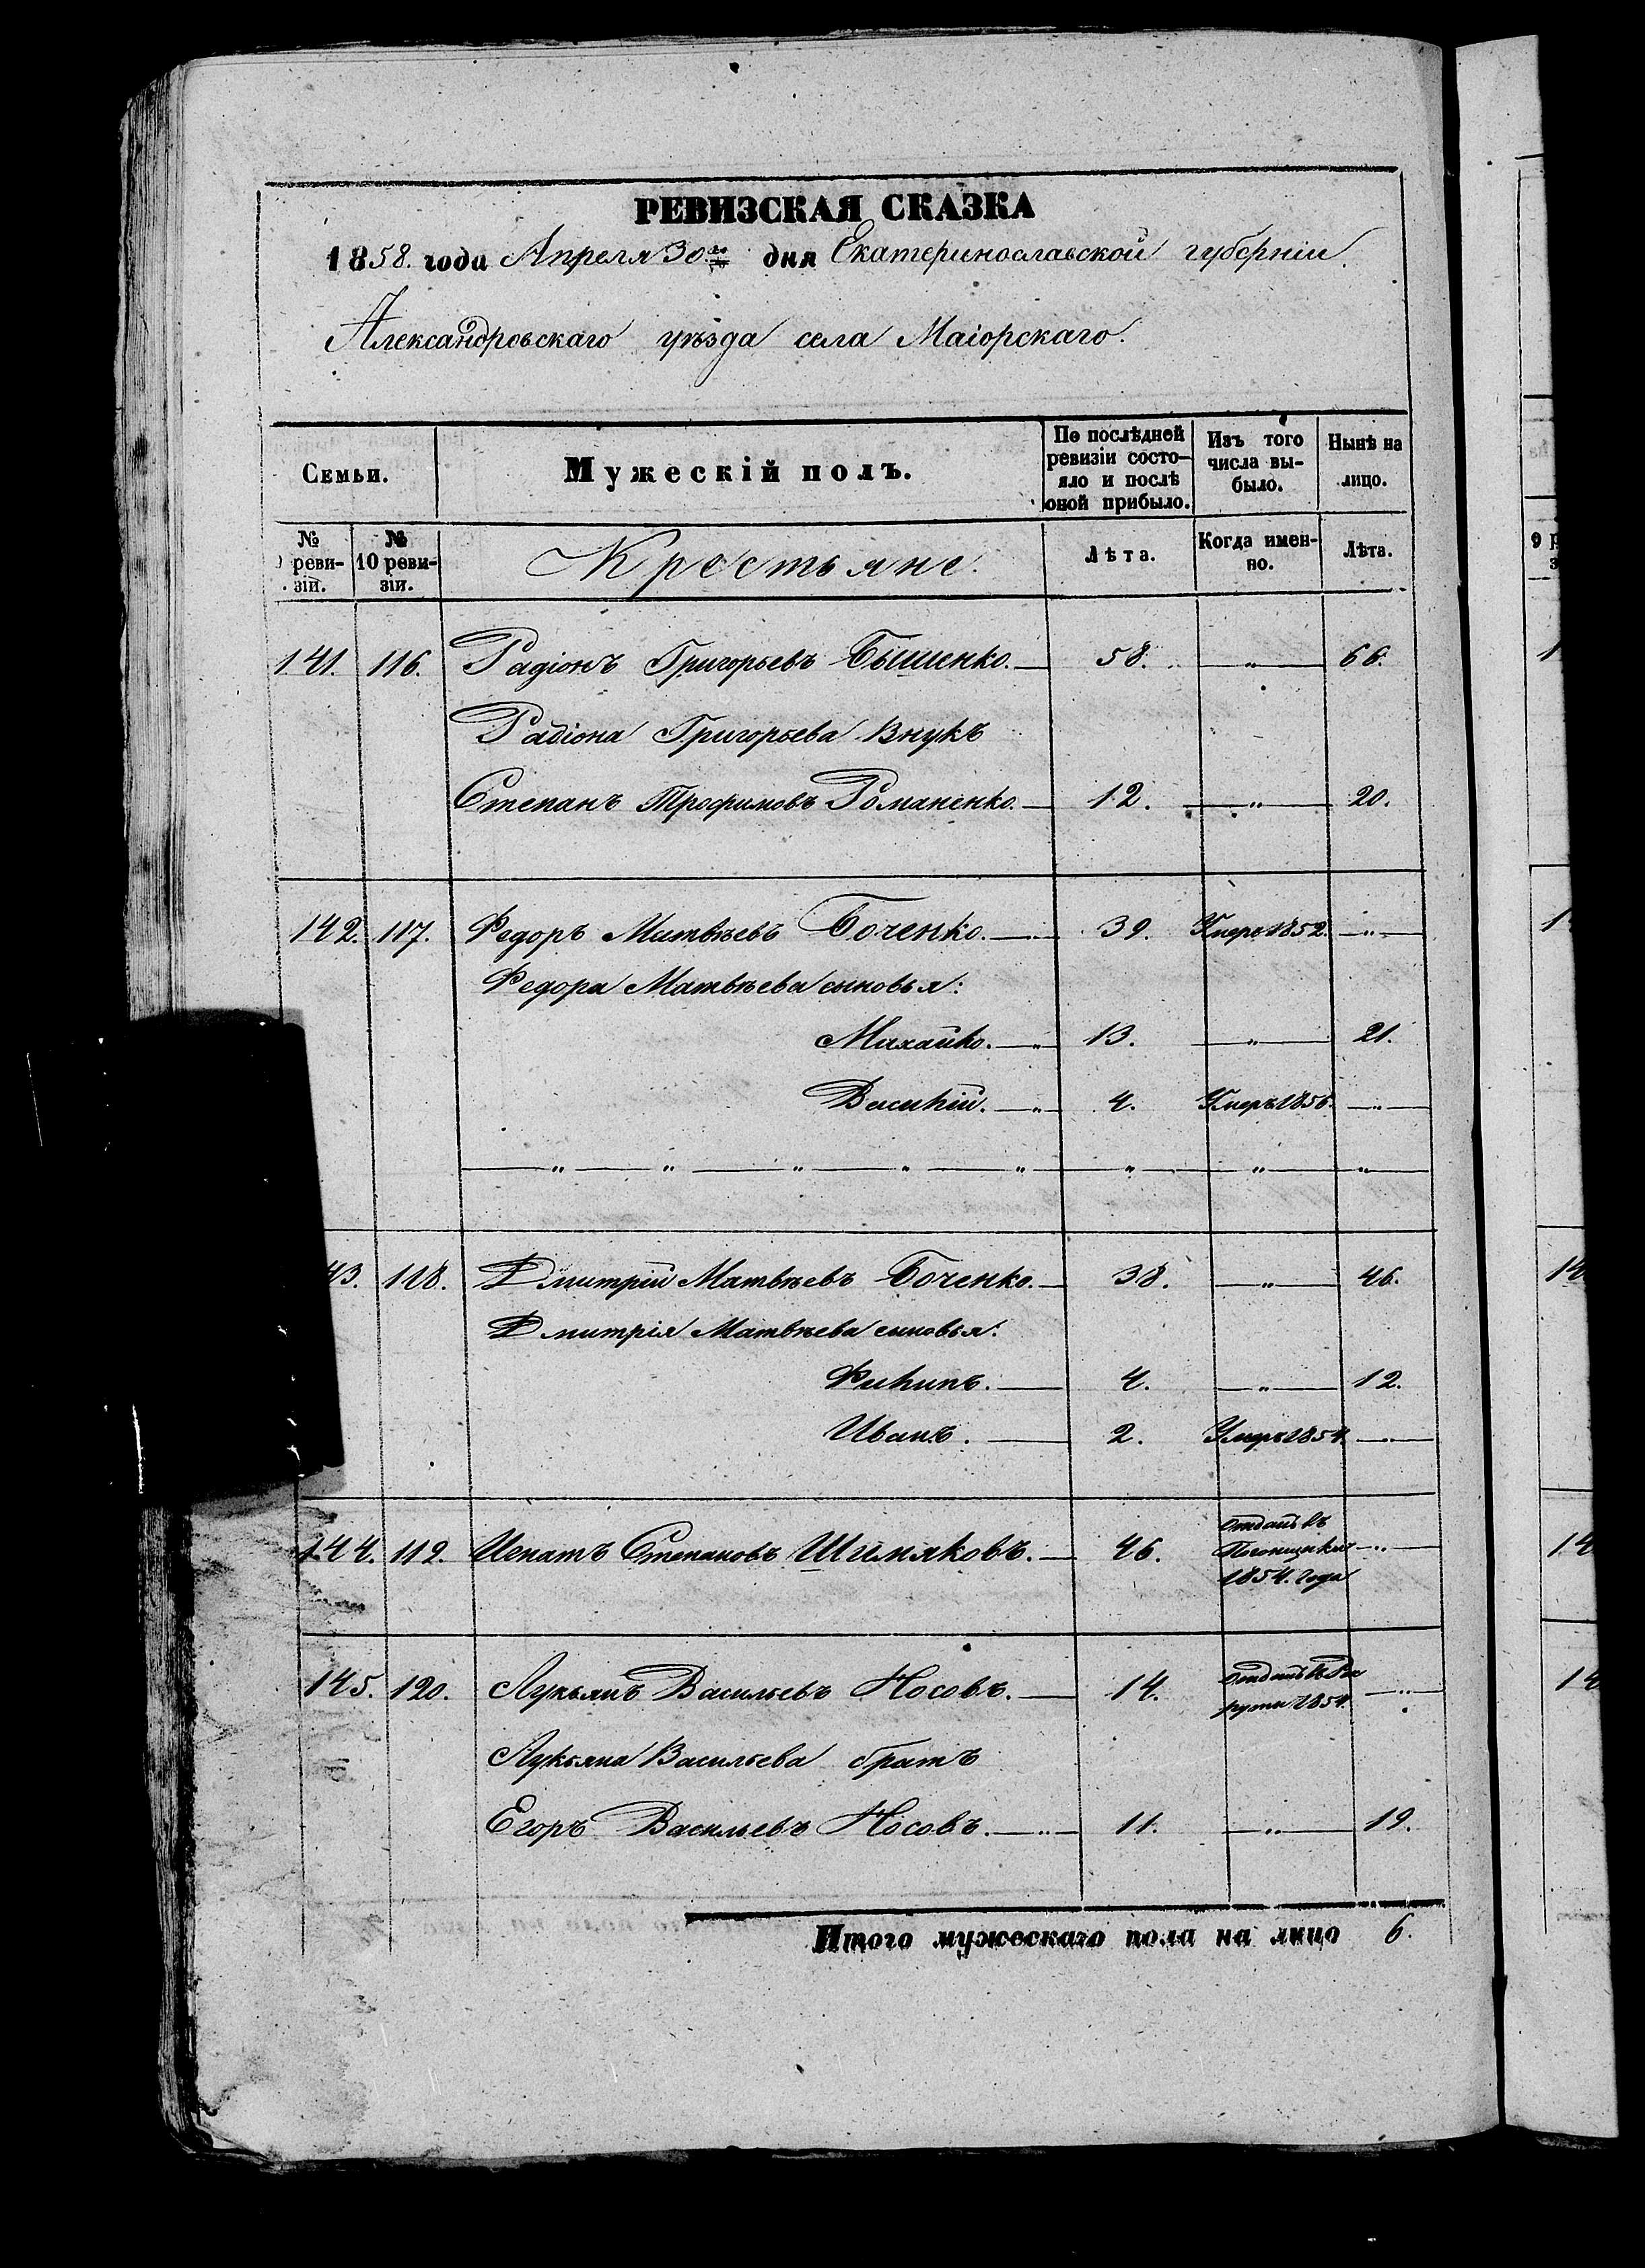 РЕВИЗСКАЯ СКАЗКА
1858. года Апреля 30го дня Екатеринославской губерніи.
Александровскаго уѣзда села Маіорскаго.
Семьи.
Мужескій полъ.
По послѣдней ревизіи состо-
яло и послѣ
оной прибыло.
Изъ того
числа вы-
было.
Нынѣ на
лицо.
№ реви-
зіи.
№ 10 реви-
зіи.
Крестьяне.
Лѣта.
Когда имен-
но.
Лѣта.
141. 116. Радіонъ Григорьевъ Бышенко. — 58. — " — 66.
Радіона Григорьева Внукъ
Степанъ Трофимовъ Романенко. — 12. — " — 20.
142. 117. Федоръ Матвѣевъ Боченко. — 39. Умеръ 1852. — " —
Федора Матвѣева сыновья:
Михайло. — " 13. — " — 21.
Василій. — " 4. Умеръ 1856. — " —
— " — " — " — " — " — " — " — "
43. 118. Дмитрій Матвѣевъ Боченко. — 38. — " — 46.
Дмитрія Матвѣева сыновья:
Филипъ. — 4. — " — 12.
Иванъ. — 2. Умеръ 1854. — " —
144. 119. Игнатъ Степановъ Шимяковъ. — 46. Отданъ въ
Погонщики — " —
1854. года
145. 120. Лукьянъ Васильевъ Носовъ. — 14. Отданъ въ Ре
круты 1854. — "
Лукьяна Васильева братъ
Егоръ Васильевъ Носовъ. — " — 11. — " — 19.
Итого мужескаго пола на лицо 6.